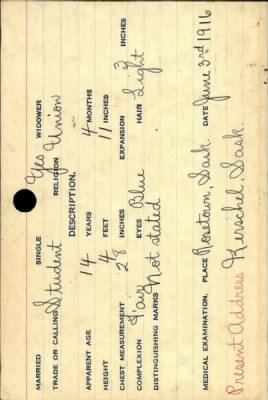 MARRIED SINGLE Yes WIDOWER
TRADE OR CALLING Student RELIGION Union
DESCRIPTION.
APPARENT AGE 14 YEARS 4 MONTHS
HEIGHT 4 FEET 11 INCHES
CHEST MEASUREMENT 28 INCHES EXPANSION 3 INCHES
COMPLEXION Fair EYES Blue HAIR Light
DISTINGUISHING MARKS Not stated
MEDICAL EXAMINATION. PLACE Rosetown, Sask DATE June 3rd 1916
Present Address Herschel, Sask.